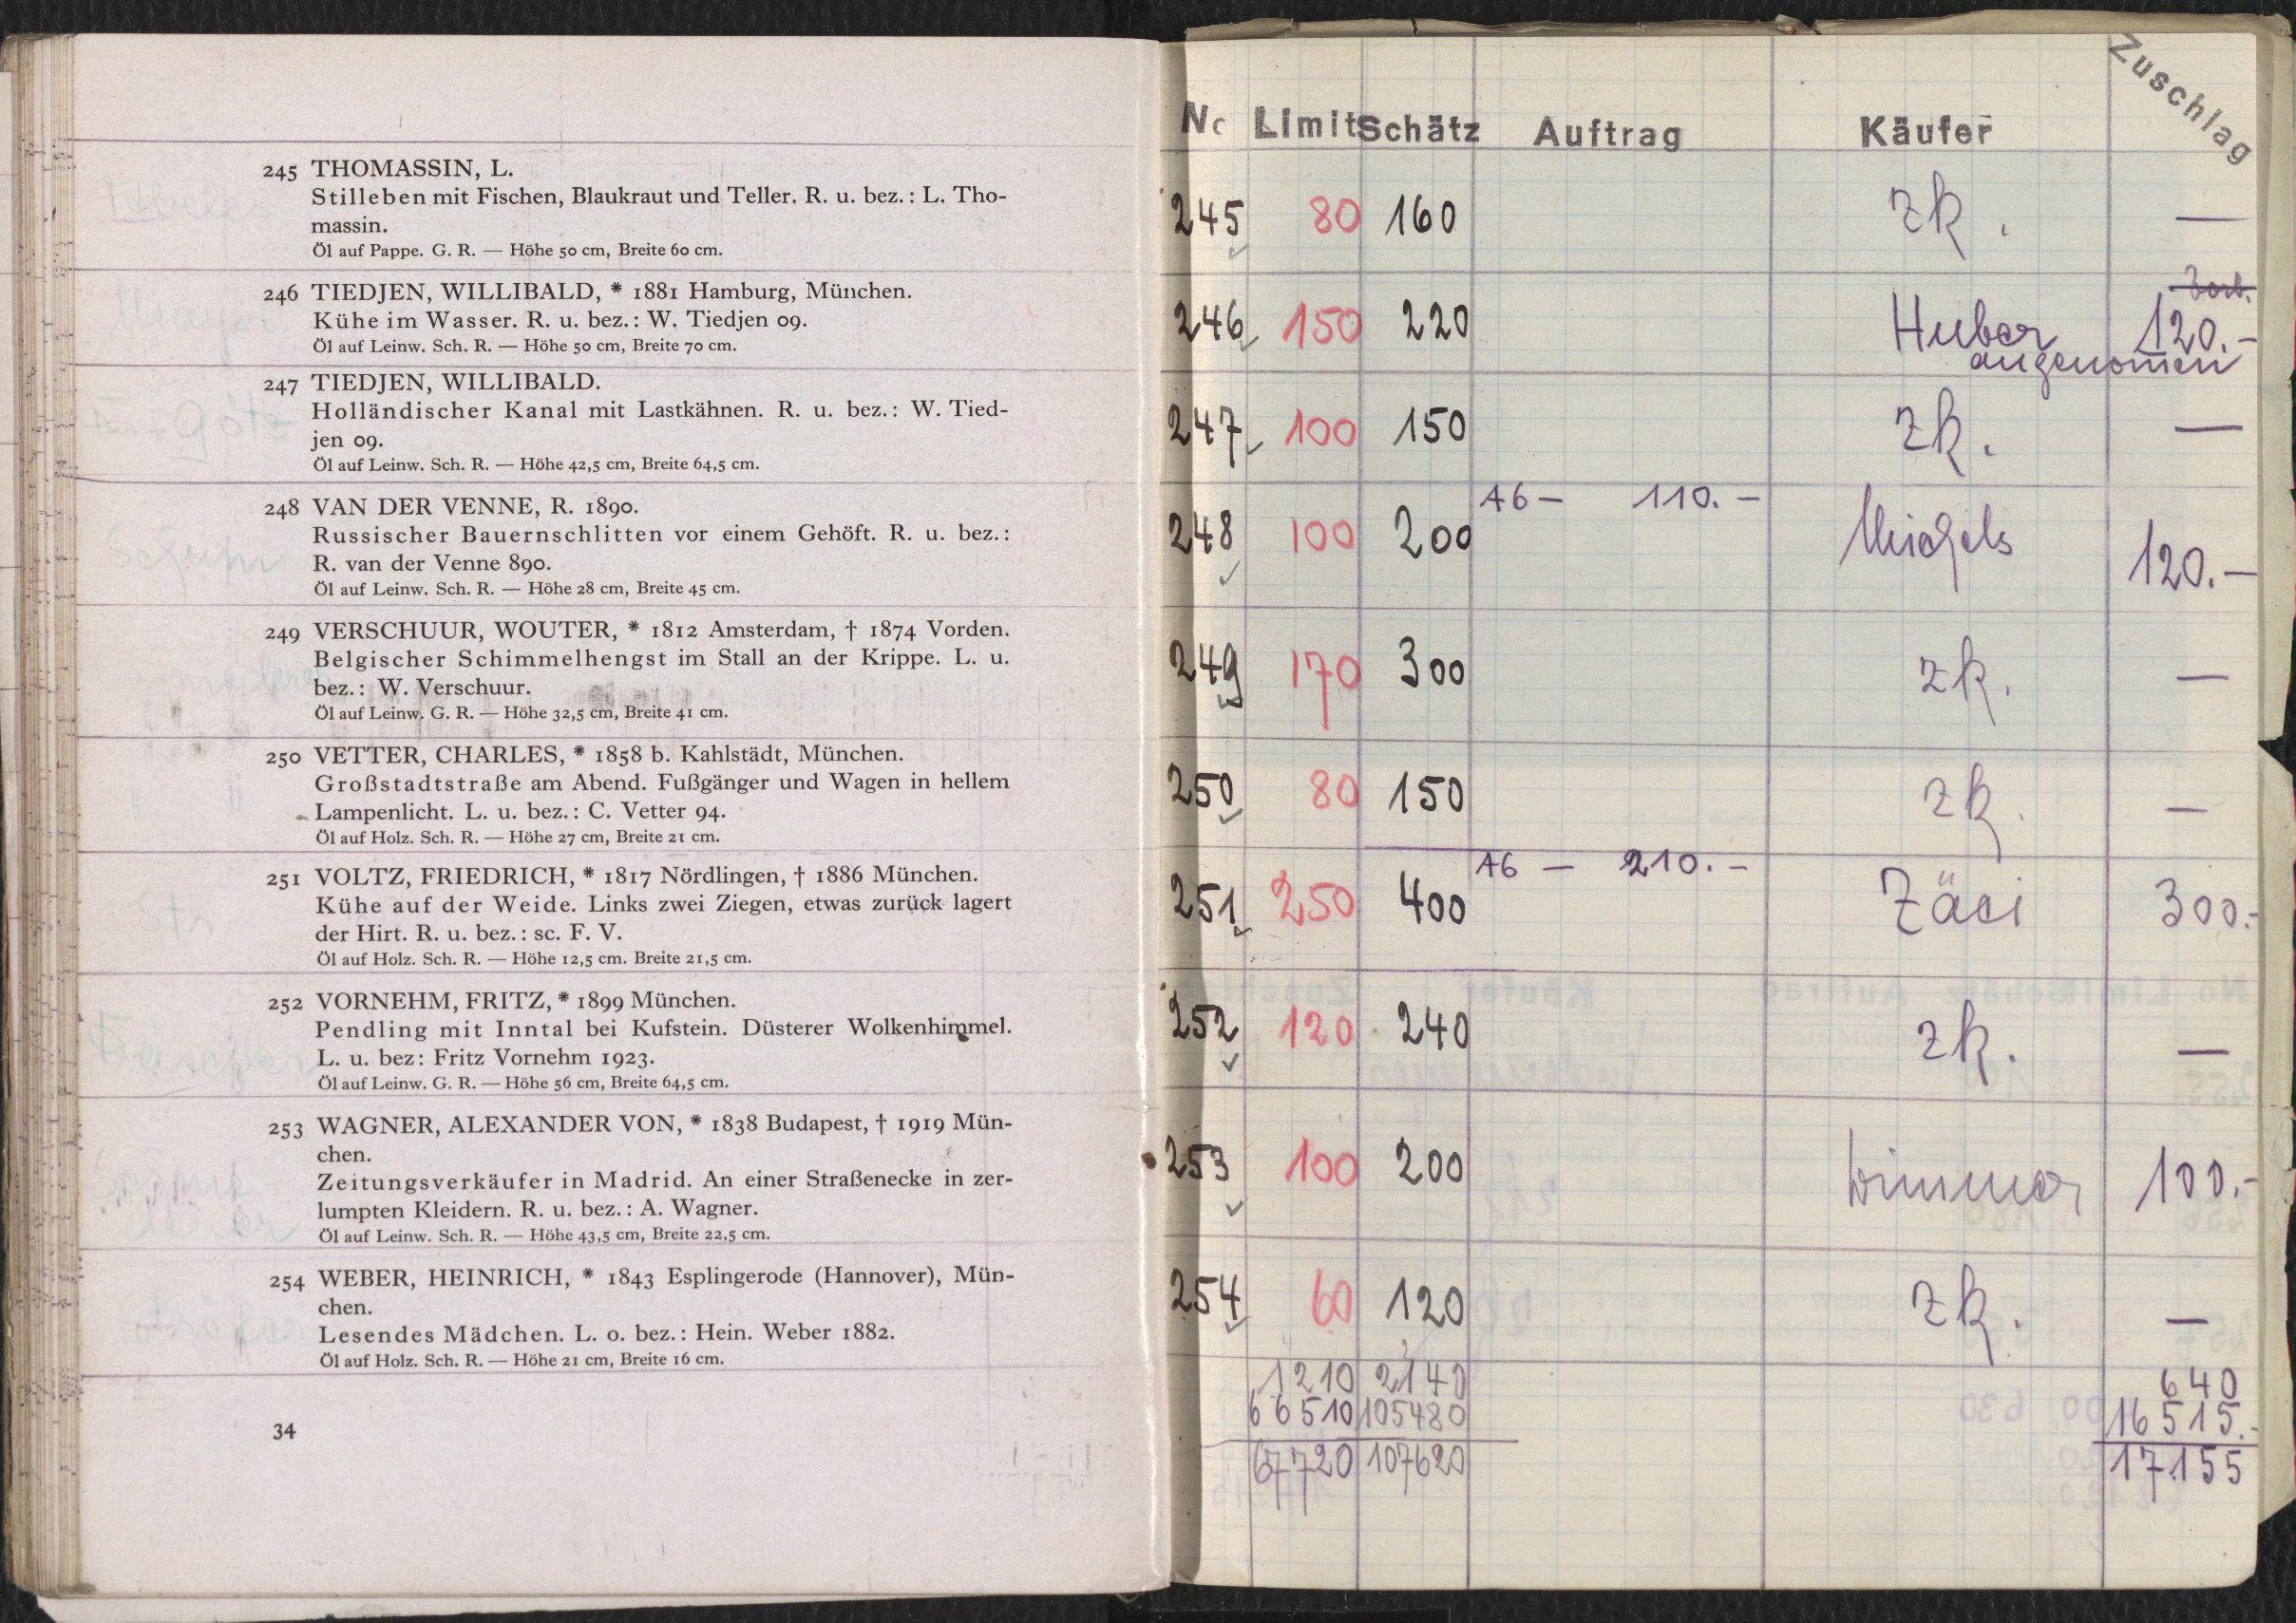 245 THOMASSIN, L.
Stilleben mit Fischen, Blaukraut und Teller. R. u. bez.: L. Tho-
massin.
Öl auf Pappe. G. R. — Höhe 50 cm, Breite 60 cm.
246 TIEDJEN, WILLIBALD, * 1881 Hamburg, München.
Kühe im Wasser. R. u. bez.: W. Tiedjen 09.
Öl auf Leinw. Sch. R. — Höhe 50 cm, Breite 70 cm.
247 TIEDJEN, WILLIBALD.
Holländischer Kanal mit Lastkähnen. R. u. bez.: W. Tied-
jen 09.
Öl auf Leinw. Sch. R. — Höhe 42,5 cm, Breite 64,5 cm.
248 VAN DER VENNE, R. 1890.
Russischer Bauernschlitten vor einem Gehöft. R. u. bez.:
R. van der Venne 890.
Öl auf Leinw. Sch. R. — Höhe 28 cm, Breite 45 cm.
249 VERSCHUUR, WOUTER, * 1812 Amsterdam, † 1874 Vorden.
Belgischer Schimmelhengst im Stall an der Krippe. L. u.
bez.: W. Verschuur.
Öl auf Leinw. G. R. — Höhe 32,5 cm, Breite 41 cm.
250 VETTER, CHARLES, * 1858 b. Kahlstädt, München.
Großstadtstraße am Abend. Fußgänger und Wagen in hellem
Lampenlicht. L. u. bez.: C. Vetter 94.
Öl auf Holz. Sch. R. — Höhe 27 cm, Breite 21 cm.
251 VOLTZ, FRIEDRICH, * 1817 Nördlingen, † 1886 München.
Kühe auf der Weide. Links zwei Ziegen, etwas zurück lagert
der Hirt. R. u. bez.: sc. F. V.
Öl auf Holz. Sch. R. — Höhe 12,5 cm. Breite 21,5 cm.
252 VORNEHM, FRITZ, * 1899 München.
Pendling mit Inntal bei Kufstein. Düsterer Wolkenhimmel.
L. u. bez: Fritz Vornehm 1923.
Öl auf Leinw. G. R. — Höhe 56 cm, Breite 64,5 cm.
253 WAGNER, ALEXANDER VON, * 1838 Budapest, † 1919 Mün-
chen.
Zeitungsverkäufer in Madrid. An einer Straßenecke in zer-
lumpten Kleidern. R. u. bez.: A. Wagner.
Öl auf Leinw. Sch. R. — Höhe 43,5 cm, Breite 22,5 cm.
254 WEBER, HEINRICH, * 1843 Esplingerode (Hannover), Mün-
chen.
Lesendes Mädchen. L. o. bez.: Hein. Weber 1882.
Öl auf Holz. Sch. R. — Höhe 21 cm, Breite 16 cm.
34
No Limit Schätz Auftrag Käufer Zuschlag
245 80 160 zk. —
246 150 220 Huber 120.-
angenomen
247 100 150 zk. —
A6 — 110. —
248 100 200 Michels 120.—
249 170 300 zk. —
250 80 150 zk. —
A6 — 210. —
251 250 400 Zäci 300.-
252 120 240 zk. —
253 100 200 Wimmer 100.-
254 60 120 zk. —
1210 2140 640
66510 105480 16515.-
67720 107620 17155